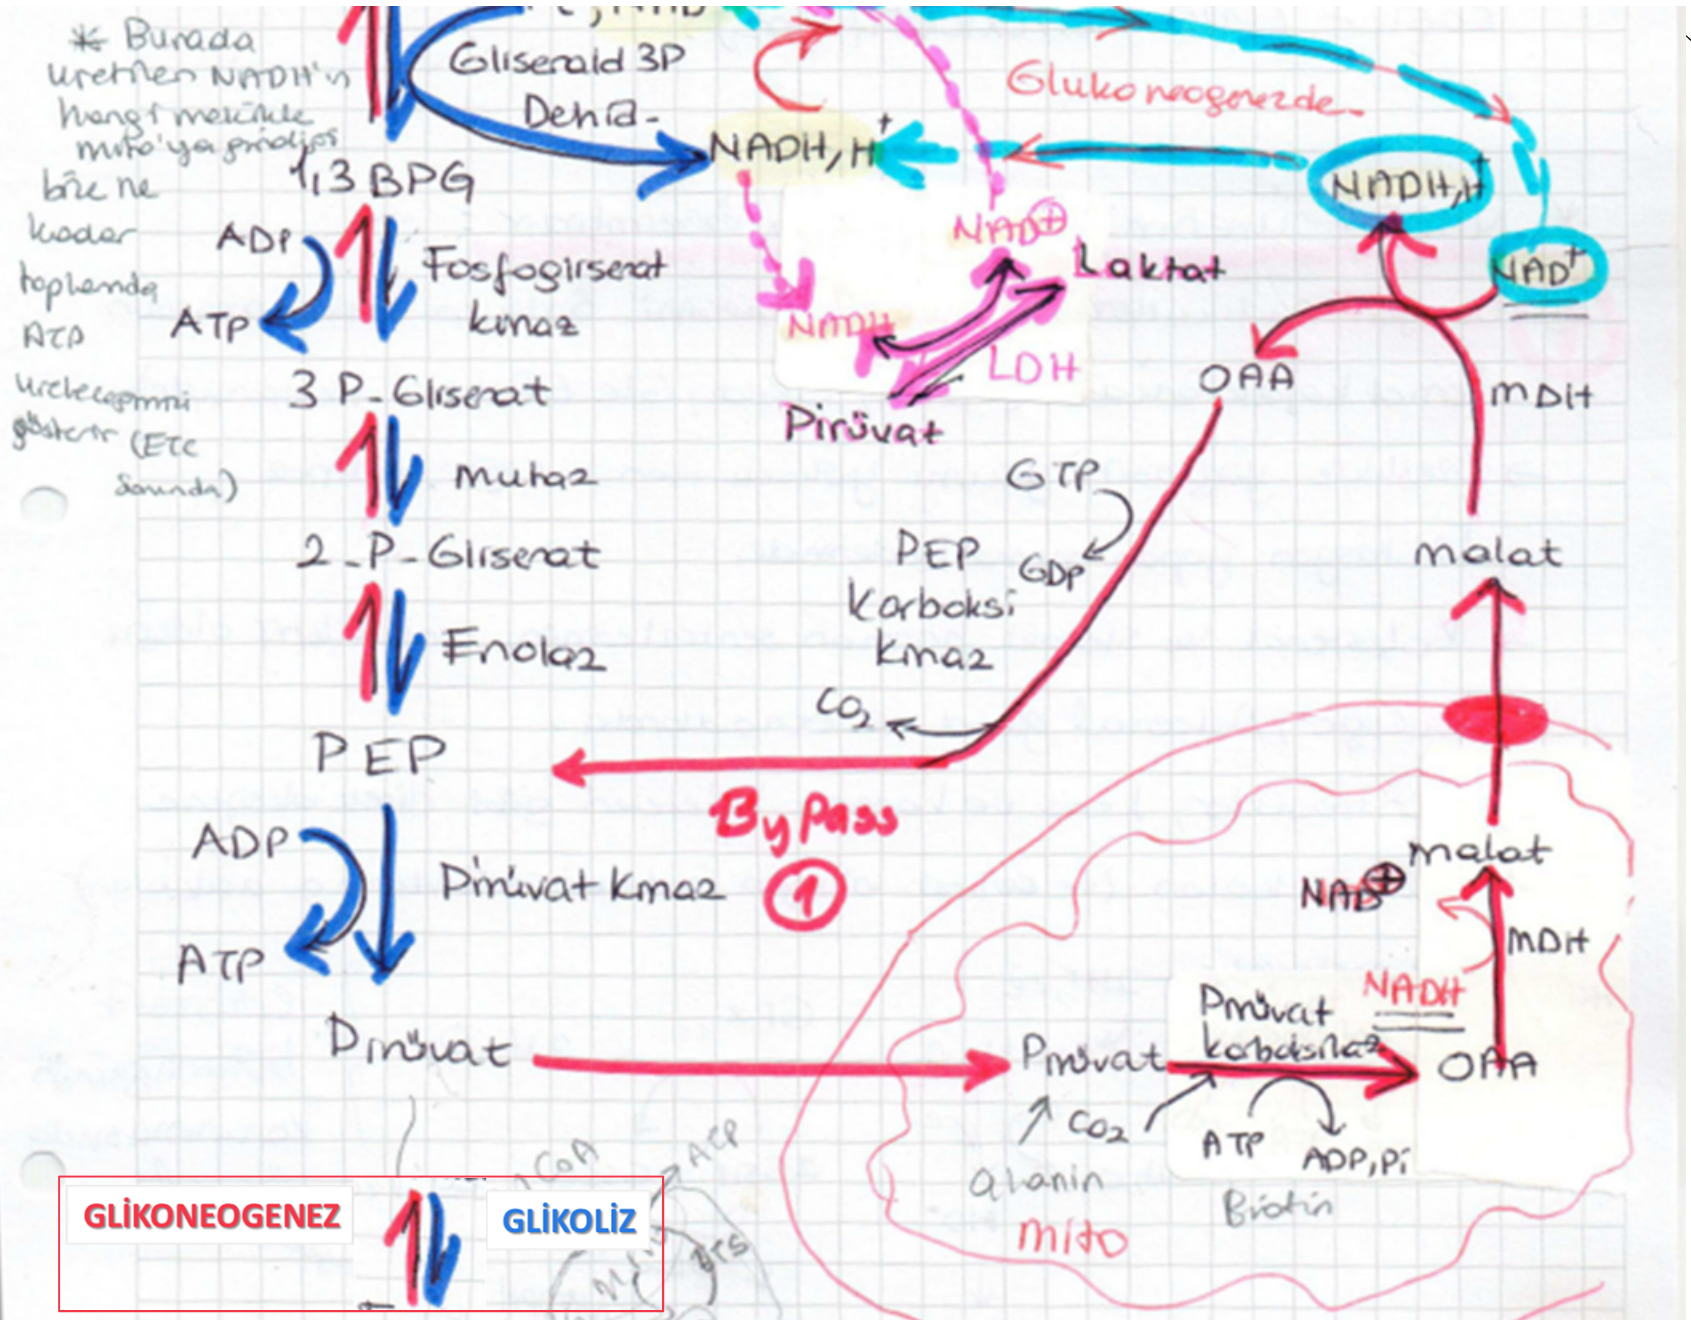 * Burada
üretilen NADH'ın
hangi mekikle
mito'ya girdiği
bize ne
kadar
toplamda
ATP
üreteceğimizi
gösterir (ETC
Sonunda)
Gliserald 3P
Dehid-
NADH, H+
Glukoneogenezde-
NADH,H+
NAD+
1,3 BPG
ADP
ATP
Fosfogliserat
kinaz
NAD+
Laktat
NADH
LDH
Pirüvat
OAA
MDH
3 P-Gliserat
Mutaz
GTP
GDP
PEP
Karboksi
kinaz
CO2
malat
2-P-Gliserat
Enolaz
PEP
By Pass
1
ADP
ATP
Pirüvat Kinaz
malat
NAD+
MDH
NADH
Pirüvat
Pirüvat
Pirüvat
karboksilaz
OAA
CO2
ATP
ADP,Pi
alanin
Biotin
mito
CoA
ATP
ETS
GLİKONEOGENEZ
GLİKOLİZ